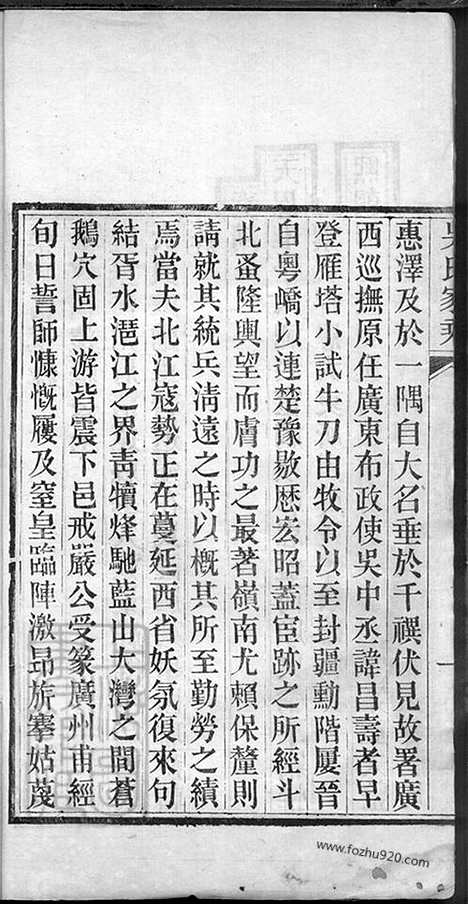 吳氏家乘
惠澤及於一隅自大名垂於千禩伏見故署廣
西巡撫原任廣東布政使吳中丞諱昌壽者早
登雁塔小試牛刀由牧令以至封疆勳階屢晉
自粵嶠以連楚豫敭歷宏昭蓋宦跡之所經斗
北蚤隆輿望而膚功之最著嶺南尤賴保釐則
請就其統兵淸遠之時以槪其所至勤勞之績
焉當夫北江寇勢正在蔓延西省妖氛復來句
結胥水滬江之界靑犢烽馳藍山大灣之間蒼
鵝穴固上游皆震下邑戒嚴公受篆廣州甫經
旬日誓師慷慨屨及窒皇臨陣激昻旂搴姑蔑
www.fozhu920.com